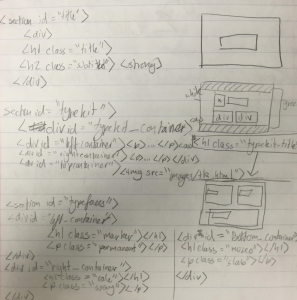 <section id="title">
<div>
<h1 class="title">
<h2 class="subtitle"> <strong>
</div>
section id="typekit">
<div id="typekit_container">
<div id="left container"> <p>... </p>
<div id="right container"> <p>... </p> </div>
<div id="top container">
<h1 class="typekit-title">
<img src="images/
div div
<section id="typefaces">
<div id="left-container">
<h1 class="marker"></h1>
<p class="permanent"></p>
</div>
<div id="right_container">
<h1 class=" "></h1>
<p class=" "></p>
</div>
<div id="bottom_container">
<h1 class=" "></h1>
<p class="slab"></p>
</div>